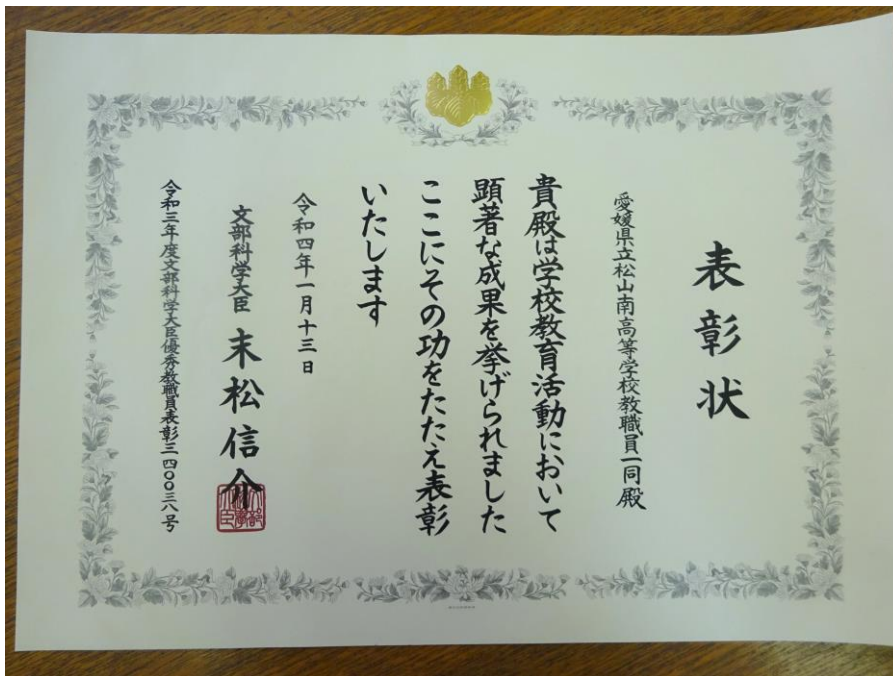 表彰状
愛媛県立松山南高等学校教職員一同殿
貴殿は学校教育活動において
顕著な成果を挙げられました
ここにその功をたたえ表彰
いたします
令和四年一月十三日
文部科学大臣 末松信介
令和三年度文部科学大臣優秀教職員表彰三四〇〇三八号